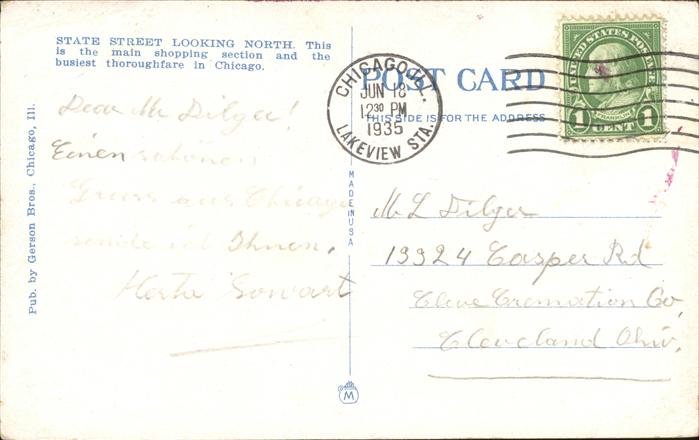 STATE STREET LOOKING NORTH. This
is the main shopping section and the
busiest thoroughfare in Chicago.
Pub. by Gerson Bros., Chicago, Ill.
Dear Mr Dilger!
Einen schönen
Gruss aus Chicago
sende ich Ihnen.
MADE IN USA
M
POST CARD
THIS SIDE IS FOR THE ADDRESS
CHICAGO, ILL.
JUN 18
12 30 PM
1935
LAKEVIEW STA.
UNITED STATES POSTAGE
FRANKLIN
1 CENT 1
Mr L Dilger
19924 Casper Rd
Cleve Cremation Co,
Cleveland Ohio.